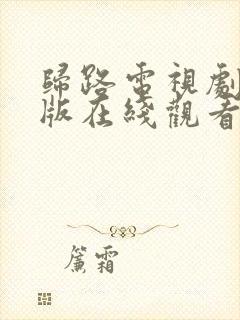 歸路電視劇
版在綫觀看
簾霜